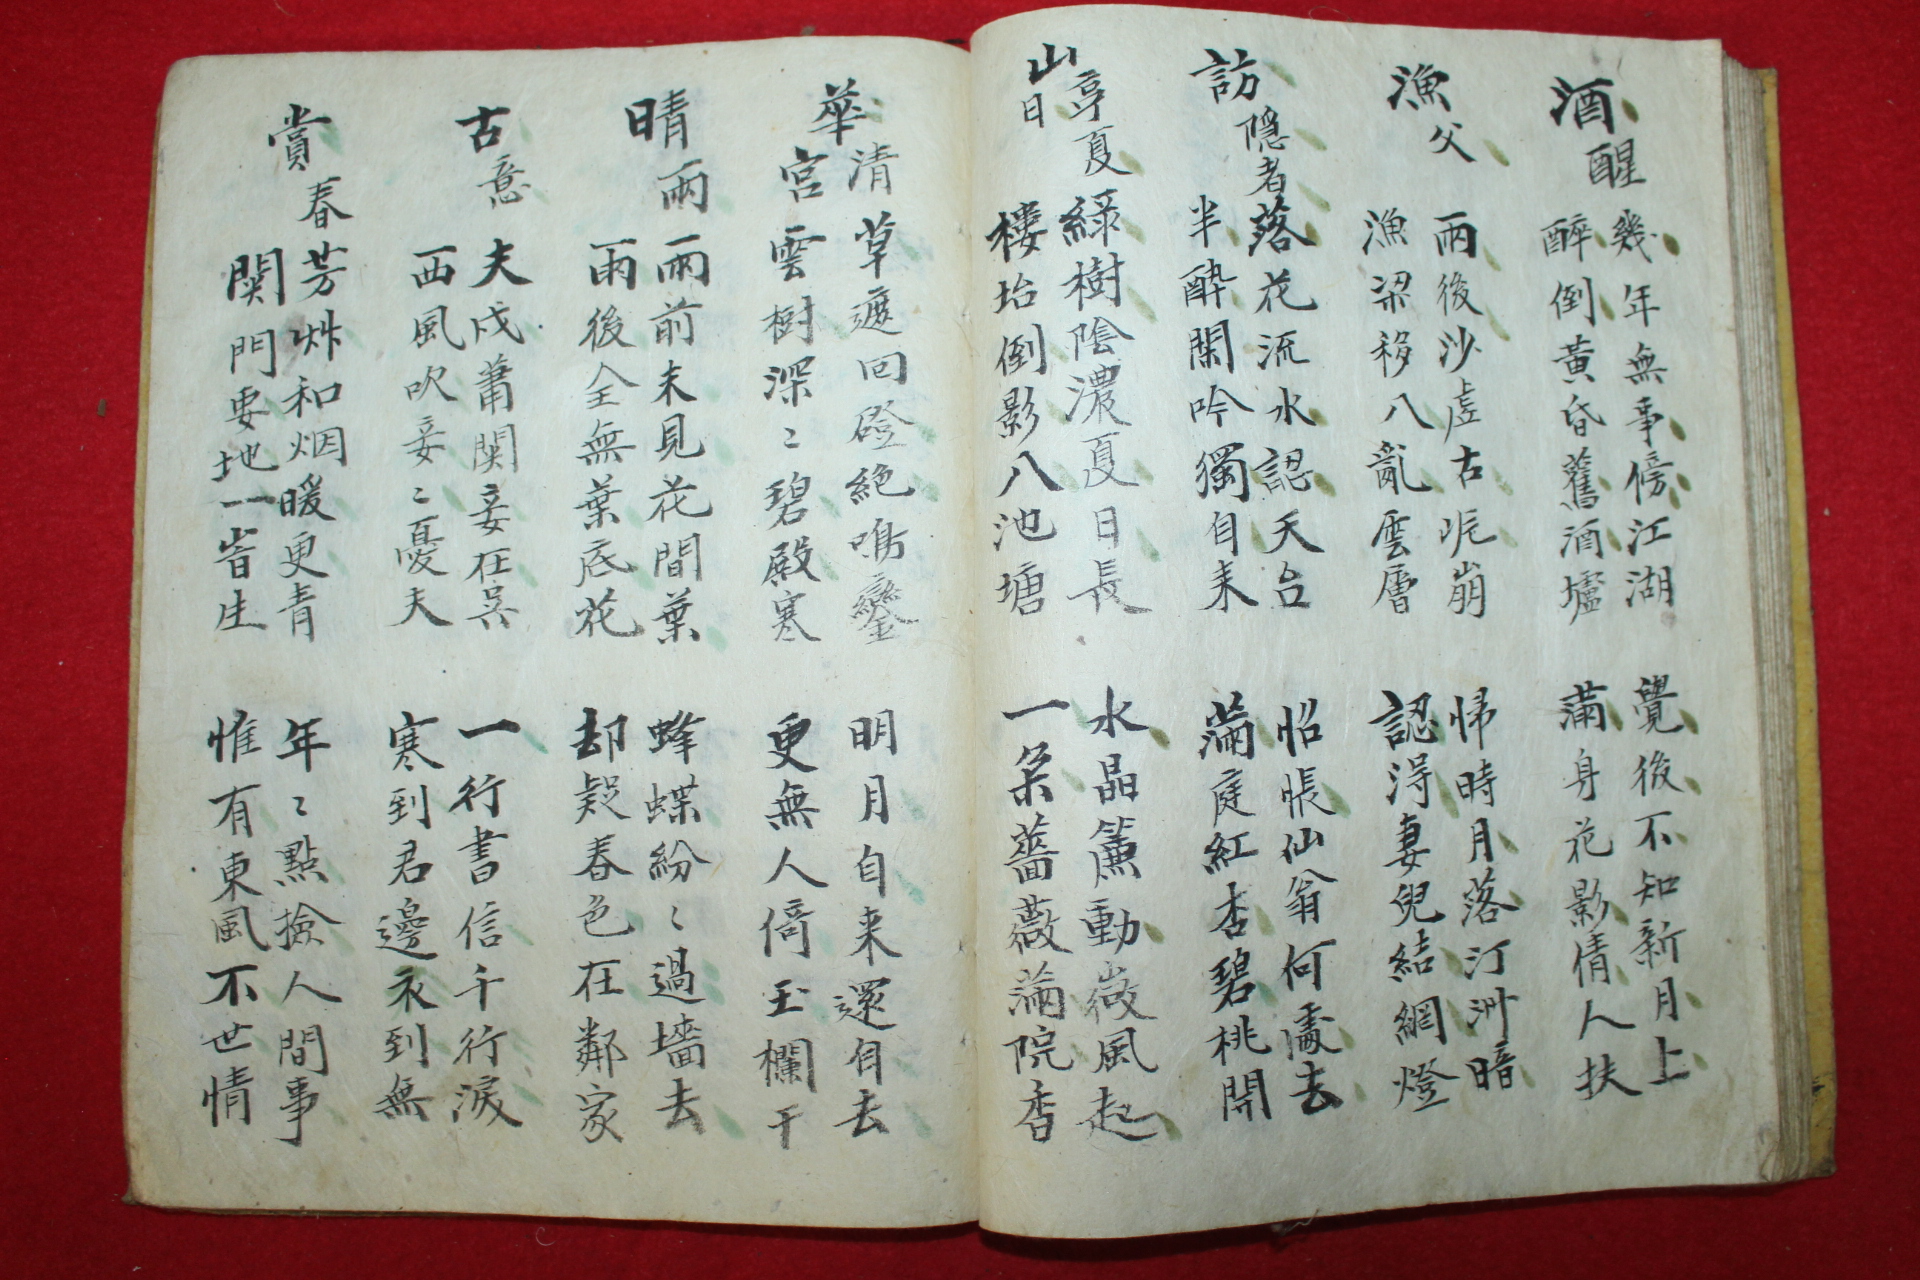 酒醒
幾年無事傍江湖
醉倒黃昏舊酒壚
覺後不知新月上
滿身花影倩人扶
漁父
雨後沙虛古岸崩
漁梁移入亂雲層
帰時月落汀洲暗
認得妻兒結網燈
訪隱者
落花流水認天台
半酔閑吟獨自来
怊悵仙翁何處去
滿庭紅杏碧桃開
山亭夏日
綠樹陰濃夏日長
樓坮倒影入池塘
水晶簾動微風起
一架薔薇滿院香
華清宮
草遮回磴絕鳴鑾
雲樹深〻碧殿寒
明月自来還自去
更無人倚玉欄干
晴雨
雨前未見花間葉
雨後全無葉底花
蜂蝶紛〻過墻去
却疑春色在鄰家
古意
夫戍蕭関妾在吳
西風吹妾〻憂夫
一行書信千行淚
寒到君邊衣到無
賞春
芳艸和烟暖更青
閑門要地一時生
年〻點撿人間事
惟有東風不世情